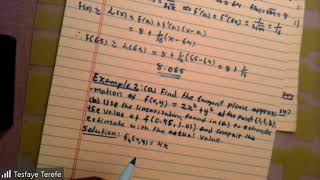 f(x) ≈ L(x) = f(a) + f'(a)(x-a)
= 8 + 1/16 (x-64)
∴ f(65) ≈ L(65) = 8 + 1/16 (65-64) = 8 + 1/16
8.065
Example 2: (a) Find the tangent plane approxi-
mation of f(x,y) = 2x² + y² at the point (1,1).
(b) Use the linearization found in (a) to estimate
the value of f(0.95, 1.01) and compare this
estimate with the actual value.
Solution: fx(x,y) = 4x
Tesfaye Terefe